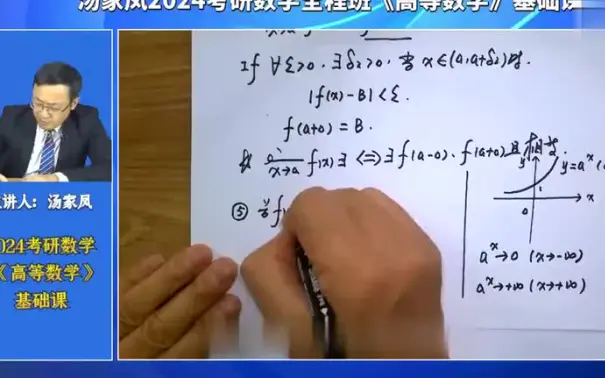 汤家凤2024考研数学全程班《高等数学》基础课
主讲人：汤家凤
2024考研数学
《高等数学》
基础课
If ∀ε>0, ∃δ₂>0, 当 x∈(a,a+δ₂)时,
|f(x)-B|<ε.
f(a+0)=B.
x→a f(x)∃ ⟺ ∃f(a-0)、f(a+0)且相等
⑤ 若f
y
y=aˣ
1
0
x
aˣ→0 (x→-∞)
aˣ→+∞ (x→+∞)